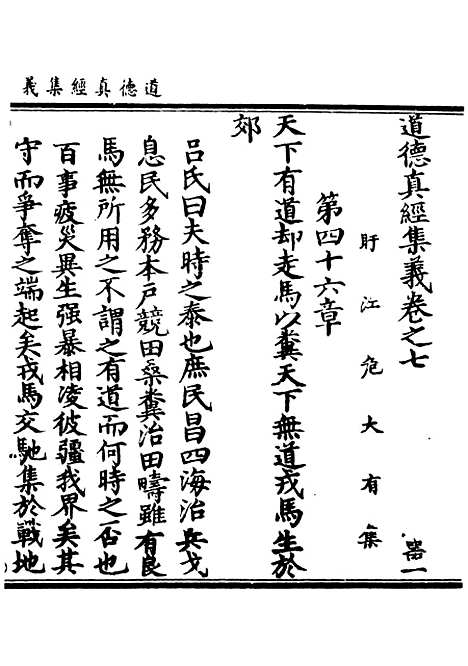 道德真經集義
道德真經集義卷之七
器一
盱江危大有集
第四十六章
天下有道却走馬以糞天下無道戎馬生於
郊
呂氏曰夫時之泰也庶民昌四海治兵戈
息民多務本戶競田桑糞治田疇雖有良
馬無所用之不謂之有道而何時之否也
百事疲災異生强暴相凌彼疆我界矣其
守而爭奪之端起矣戎馬交馳集於戰地